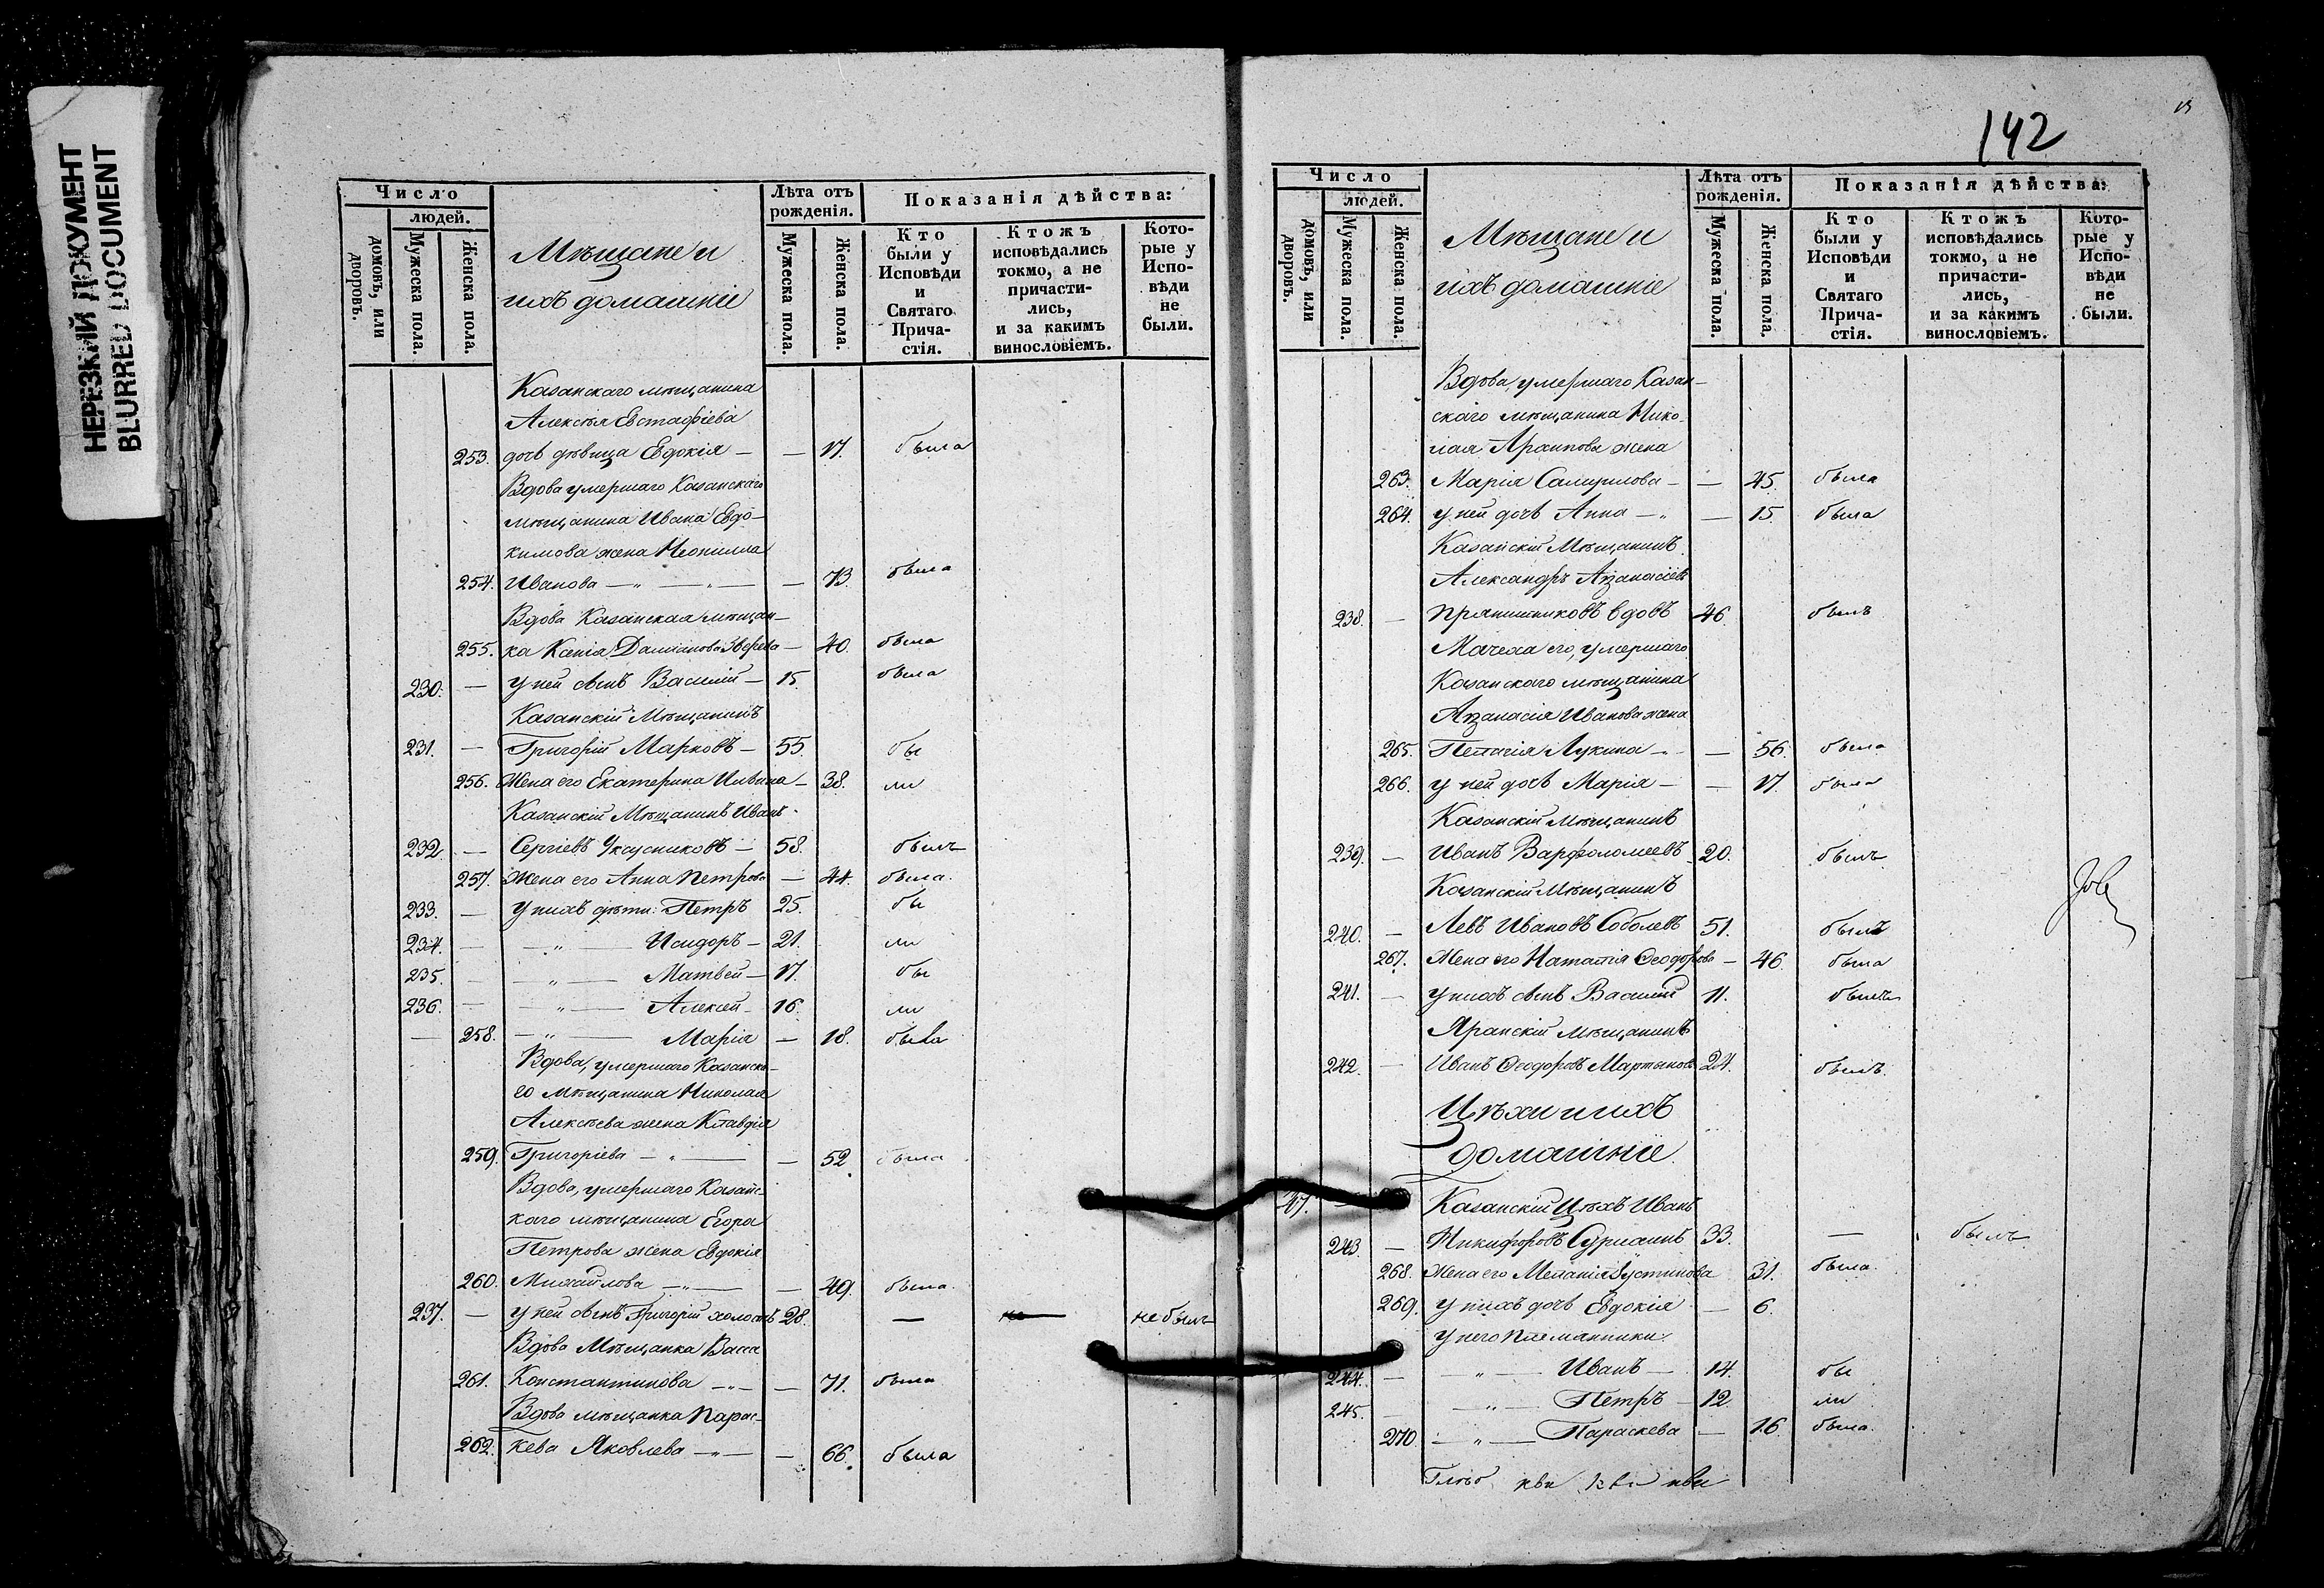 НЕРЕЗКИЙ ДОКУМЕНТ
BLURRED DOCUMENT
Число
людей.
домовъ, или дворовъ.
Мужеска пола.
Женска пола.
Мѣщане и
ихъ домашніе
Лѣта отъ рожденія.
Мужеска пола.
Женска пола.
Показанія дѣйства:
Кто были у Исповѣди и Святаго Прича-стія.
Ктожъ исповѣдались токмо, а не причасти-лись, и за какимъ винословіемъ.
Кото-рые у Испо-вѣди не были.
Казанскаго мѣщанина
Алексѣя Евстафіева
253. дочь дѣвица Евдокія — — 17. была
Вдова умершаго Казанскаго
мѣщанина Ивана Евдо-
кимова жена Неонилла
254. Иванова — „ — „ — — 73. была
Вдова Казанская мѣщан-
255. ка Ксенія Даміанова Зверева — 40. была
230. — у ней сынъ Василій — 15. была
Казанскій Мѣщанинъ
231. — Григорій Марковъ — 55. бы
256. Жена его Екатерина Ильина — 38. ли
Казанскій Мѣщанинъ Иванъ
232. — Сергіевъ Укусниковъ — 58. былъ
257. Жена его Анна Петрова — 44. была.
233. — У нихъ дѣти: Петръ 25. бы
234. — — „ — Исидоръ — 21. ли
235. — — „ — Матвей — 17. бы
236. — — „ — Алексей — 16. ли
— 258. — „ — Марія — 18. была
Вдова, умершаго Казанска-
го мѣщанина Николая
Алексѣева жена Клавдія
259. Григоріева — „ — — 52 была
Вдова, умершаго Казанс-
каго мѣщанина Егора
Петрова жена Евдокія
260. Михайлова — „ — — 49. была.
237. — у ней сынъ Григорій холостъ 28. — не былъ
Вдова Мѣщанка Васса
261. Константинова — „ — — 71. была
Вдова мѣщанка Парас-
262. кева Яковлева — „ — — 66. была
142
Число
людей.
домовъ, или дворовъ.
Мужеска пола.
Женска пола.
Мѣщане и
ихъ домашніе
Лѣта отъ рожденія.
Мужеска пола.
Женска пола.
Показанія дѣйства:
Кто были у Исповѣди и Святаго Прича-стія.
Ктожъ исповѣдались токмо, а не причасти-лись, и за какимъ винословіемъ.
Кото-рые у Испо-вѣди не были.
Вдова, умершаго Казан-
скаго мѣщанина Нико-
лая жена
263. Марія Самуилова — — 45. была
264. у ней дочь Анна — „ — 15. была
Казанскій Мѣщанинъ
Александръ Аѳанасіевъ
238. — Прянишниковъ вдовъ 46. былъ
Мачеха его, умершаго
Казанскаго мѣщанина
Аѳанасія Иванова жена
265. Пелагія Лукина — — 56. была
266. у ней дочь Марія — — 17. была
Казанскій мѣщанинъ
239. — Иванъ Варфоломеевъ 20. былъ
Казанскій Мѣщанинъ
240. — Левъ Ивановъ Соболевъ 51. былъ
267. Жена его Наталія Ѳеодорова — 46. была
241. — у нихъ сынъ Василій 11. былъ
Яранскій мѣщанинъ
242. — Иванъ Ѳеодоровъ Мартыновъ 24. былъ.
Цѣхи и ихъ
домашніе
47. Казанскій Цѣхъ Иванъ
243. — Никифоровъ 33. — былъ
268. Жена его Меланія Іустинова 31. была.
269. у нихъ дочь Евдокія — 6.
у него племянники:
244. — — „ — Иванъ — 14. бы
245. — „ — Петръ — 12 ли
270 — „ — Параскева — 16. была.